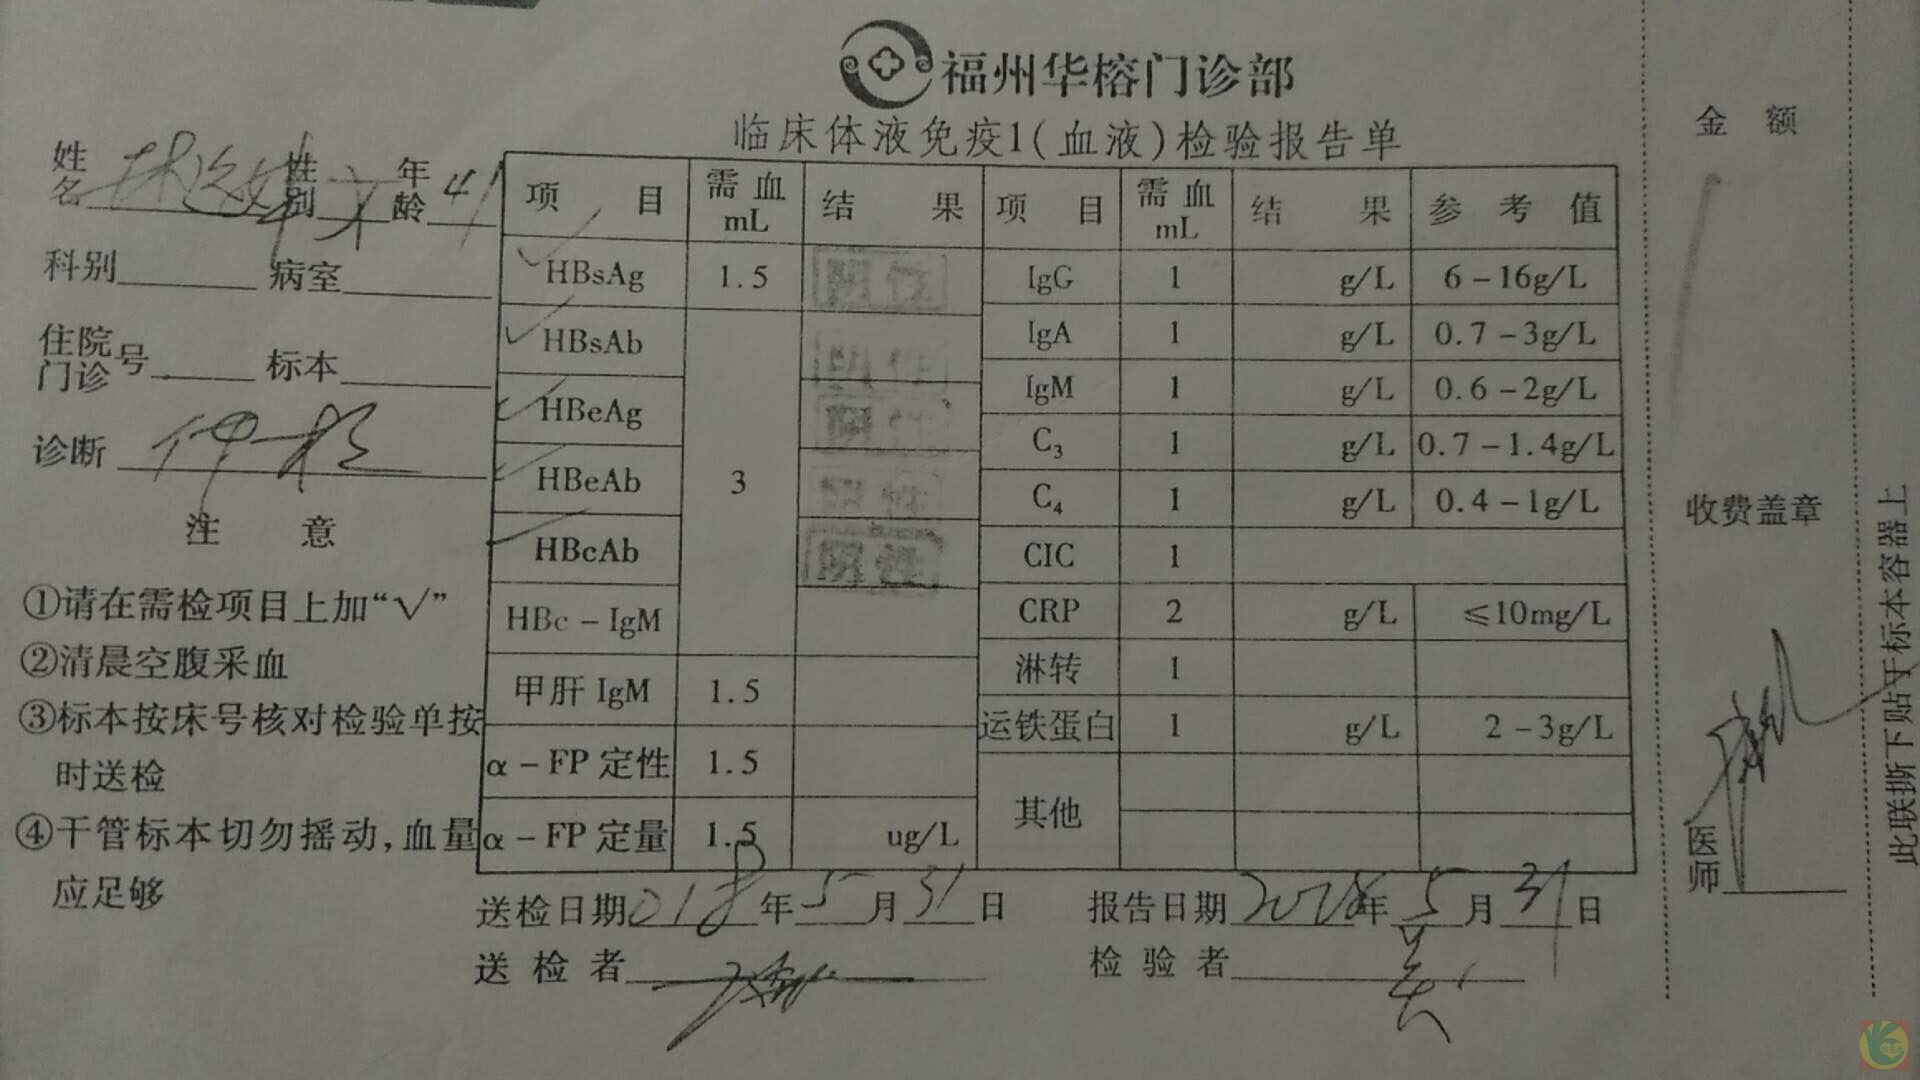 福州华榕门诊部
临床体液免疫1(血液)检验报告单
姓名 性别 年龄 41
科别 病室
住院门诊号 标本
诊断
注 意
①请在需检项目上加“√”
②清晨空腹采血
③标本按床号核对检验单按
时送检
④干管标本切勿摇动,血量
应足够
项 目 需血mL 结 果 项 目 需血mL 结 果 参 考 值
√ HBsAg 1.5 阴性 IgG 1 g/L 6-16g/L
√ HBsAb 3 IgA 1 g/L 0.7-3g/L
√ HBeAg 阴性 IgM 1 g/L 0.6-2g/L
√ HBeAb C₃ 1 g/L 0.7-1.4g/L
√ HBcAb 阴性 C₄ 1 g/L 0.4-1g/L
CIC 1
HBc-IgM CRP 2 g/L ≤10mg/L
甲肝 IgM 1.5 淋转 1
α-FP 定性 1.5 运铁蛋白 1 g/L 2-3g/L
α-FP 定量 1.5 ug/L 其他
送检日期 018年 5月 31日 报告日期 2018年 5月 31日
送 检 者 检 验 者
金 额
收费盖章
医师
此联撕下贴于标本容器上